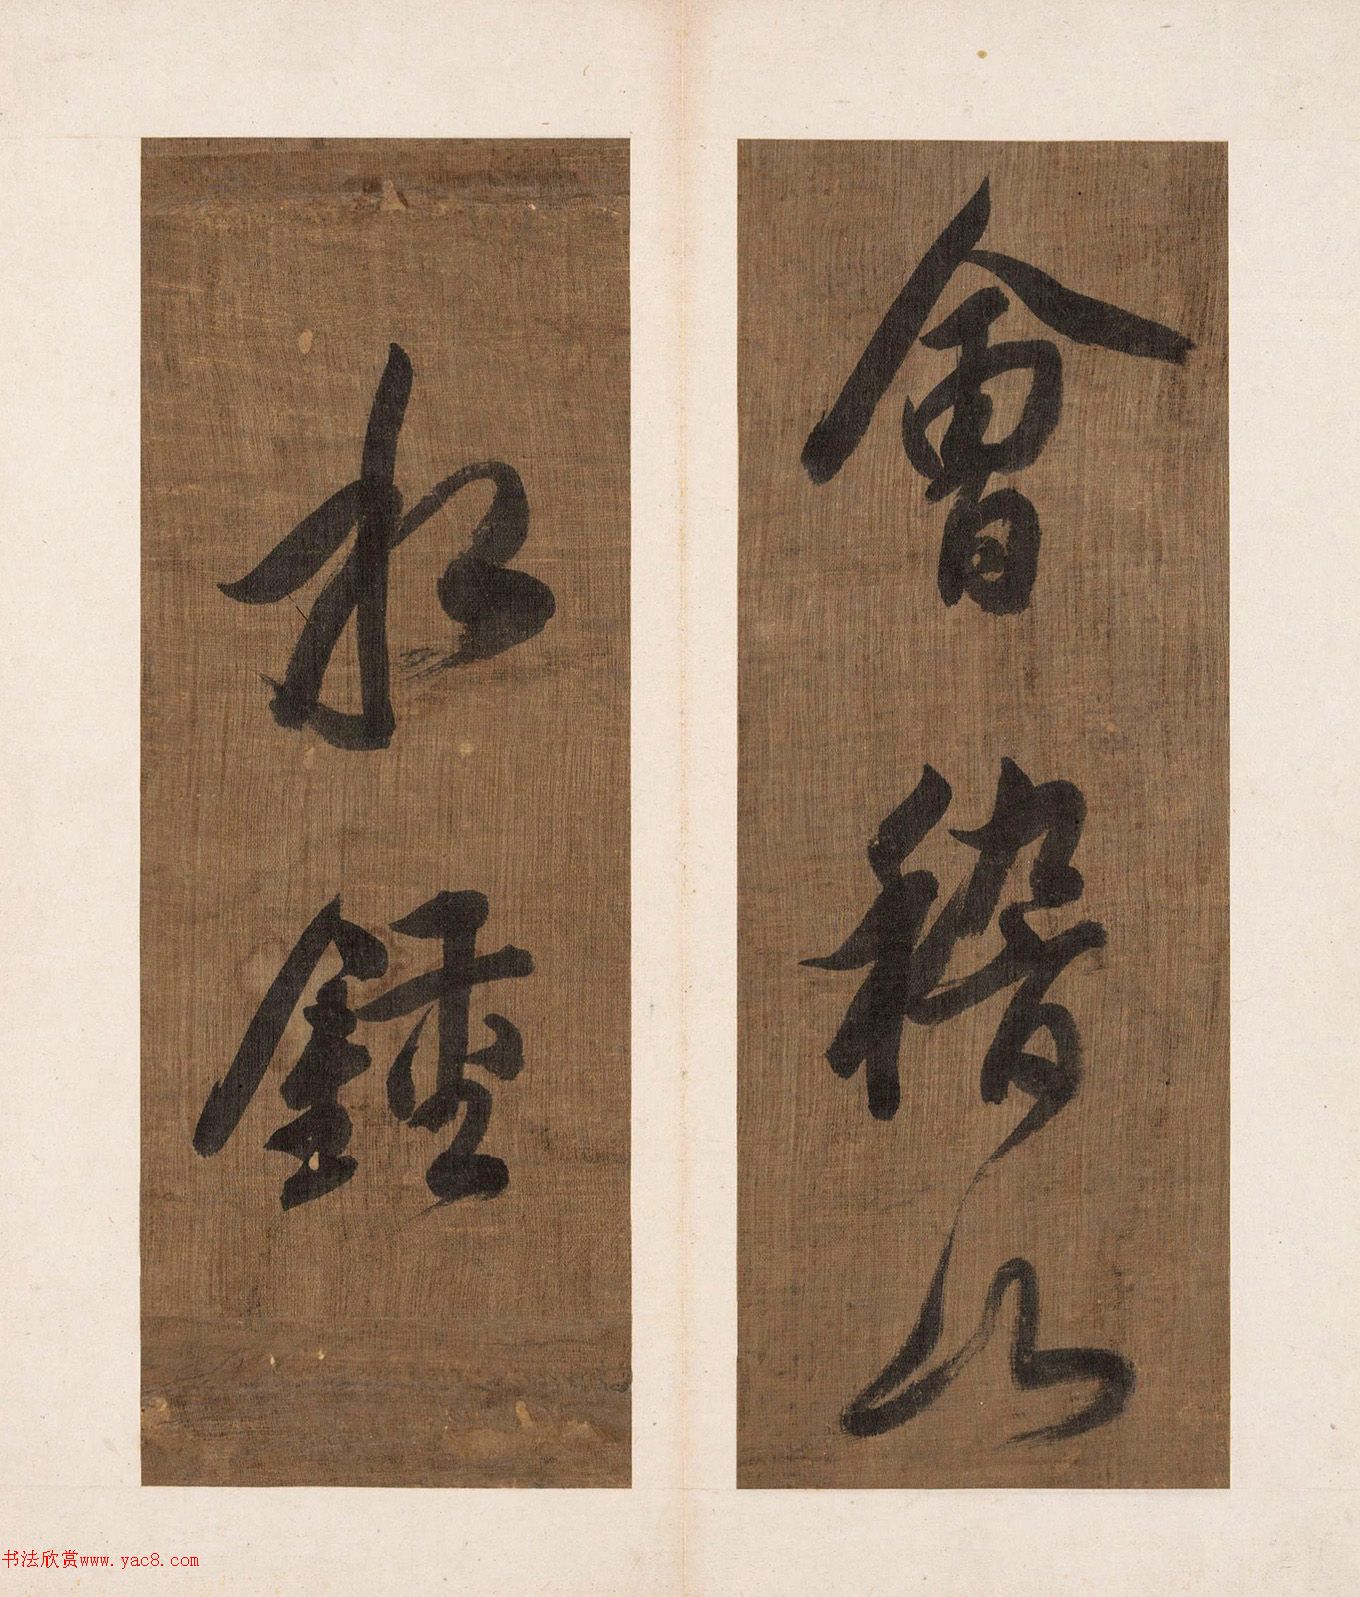 會稽
於鍾
书法欣赏www.yac8.com